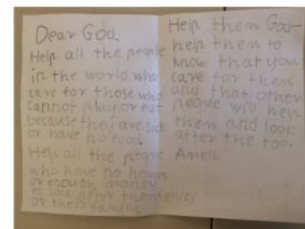 Dear God.
Help all the people
in the world who
care for those who
cannot play or eat
because they are sick
or have no food.
Help all the people
who have no homes
or enough money
to look after themselves
or their families
Help them God—
help them to
know that you
care for them
and that other
people will help
them and look
after the too.
Amen